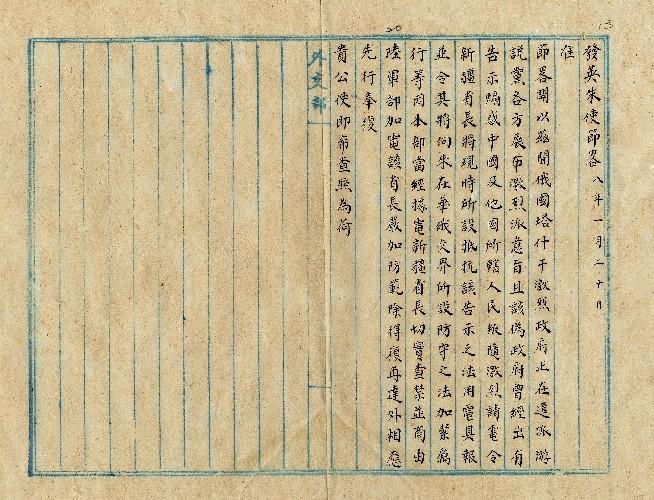 發英朱使節畧 八年一月二十日
准
節畧開以茲聞俄國塔什干激烈政府正在選派游
說黨各方展布激烈派意旨且該偽政府曾經出有
告示煽惑中國及他國所轄人民服隨激烈請電令
新疆省長將現時所設抵抗該告示之法用電具報
並令其將向來在華俄交界所設防守之法加緊爲
行等因本部當經據電新疆省長切實查禁並商由
陸軍部加電該省長嚴加防範除得復再達外相應
先行奉復
貴公使即希查照為荷
外交部
20
13